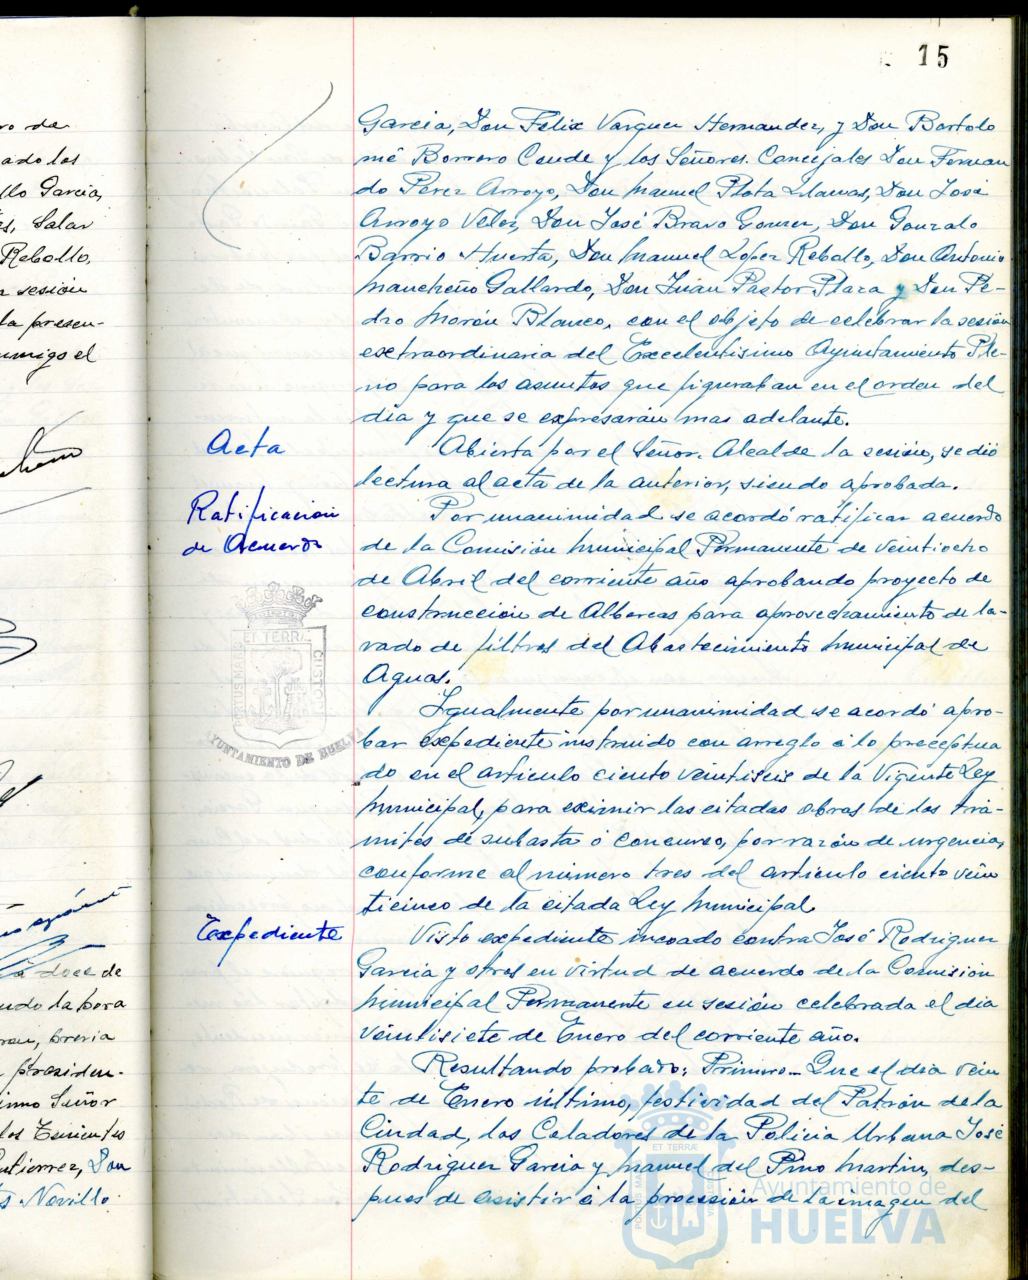 15
ro de
ado los
llo Garcia,
es, Salas
Rebollo,
n sesión
ta presen-
nmigo el
a doce de
ndo la hora
ron, previa
presiden-
imo Señor
los Tenientes
Gutierrez, Don
s Novillo.
Garcia, Don Felix Vazquez Hernandez, y Don Bartolo
mé Borrero Conde y los Señores. Concejales Don Fernan
do Perez Arroyo, Don Manuel Plata Llanas, Don José
Arroyo Velez, Don José Bravo Gomez, Don Gonzalo
Barrio Huesta, Don Manuel López Rebollo, Don Antonio
Mancheño Gallardo, Don Juan Pastor Plaza y Don Pe-
dro Morón Blanco, con el objeto de celebrar la sesión
esctraordinaria del Excelentisimo Ayuntamiento Ple-
no para los asuntos que figuraban en el orden del
dia y que se expresarán mas adelante.
Acta
Abierta por el Señor. Alcalde la sesión, se dió
lectura al acta de la anterior, siendo aprobada.
Ratificacion
de Acuerdo
Por unanimidad se acordó ratificar acuerdo
de la Comisión Municipal Permanente de veintiocho
de Abril del corriente año aprobando proyecto de
construccion de Albercas para aprovechamiento de la-
vado de filtros del Abastecimiento Municipal de
Aguas.
ET TERRA
PORTUS MARIS
CUSTODIA
AYUNTAMIENTO DE HUELVA
Igualmente por unanimidad se acordó apro-
bar expediente instruido con arreglo á lo preceptua
do en el articulo ciento veintiseis de la Vigente Ley
Municipal, para eximir las citadas obras de los trá-
mites de subasta ó concurso, por razón de urgencia,
conforme al número tres del articulo ciento vein
ticinco de la citada Ley Municipal.
Expediente
Visto expediente incoado contra José Rodriguez
Garcia y otros en virtud de acuerdo de la Comisión
Municipal Permanente en sesión celebrada el dia
veintisiete de Enero del corriente año.
Resultando probado: Primero.- Que el dia vein
te de Enero último, festividad del Patrón de la
Ciudad, los Celadores de la Policia Urbana José
Rodriguez Garcia y Manuel del Pino Martin, des-
pues de asistir á la procesión de la imagen del
Ayuntamiento de
HUELVA